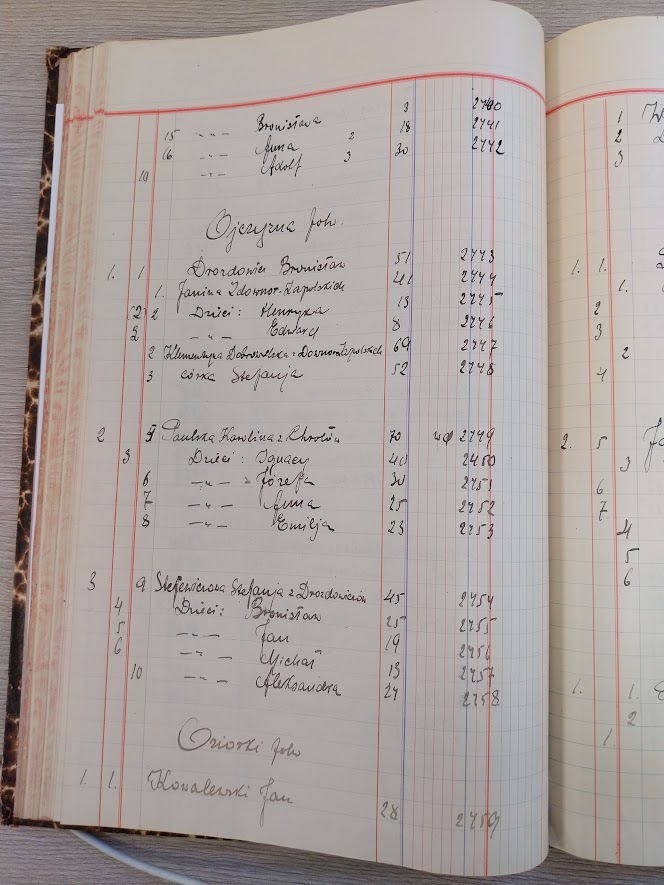 3 2740
15 -„- Bronisława 18 2741
16 -„- Anna 2 30 2742
10 -„- Adolf 3
Ojczyzna folw.
1. 1 Drozdowicz Bronisław 51 2743
1. Janina Zdownor-Zapolskich 41 2744
(2) 2 Dzieci: Henryka 13 2745
2 -„- Edward 8 2746
2 Klementyna Dobrowolska z Downor-Zapolskich 69 2747
3 córka Stefanja 52 2748
2 Paulska Karolina z Chrołów 70 2749
3 Dzieci: Ignacy 40 2450
6 -„- Józefa 30 2751
7 -„- Anna 25 2752
8 -„- Emilja 23 2753
3 9 Stefanja z Drozdowiczów 45 2754
4 Dzieci: Bronisław 25 2755
5 -„- Jan 19 2756
6 -„- Michaś 13 2757
10 -„- Aleksandra 27 2758
Oziorki folw
1. 1. Kowalewski Jan 28 2759
1
2
3
1. 1.
1.
2
3
2
4
2. 5
3
6
7
4
5
6
1. 1.
2
1.